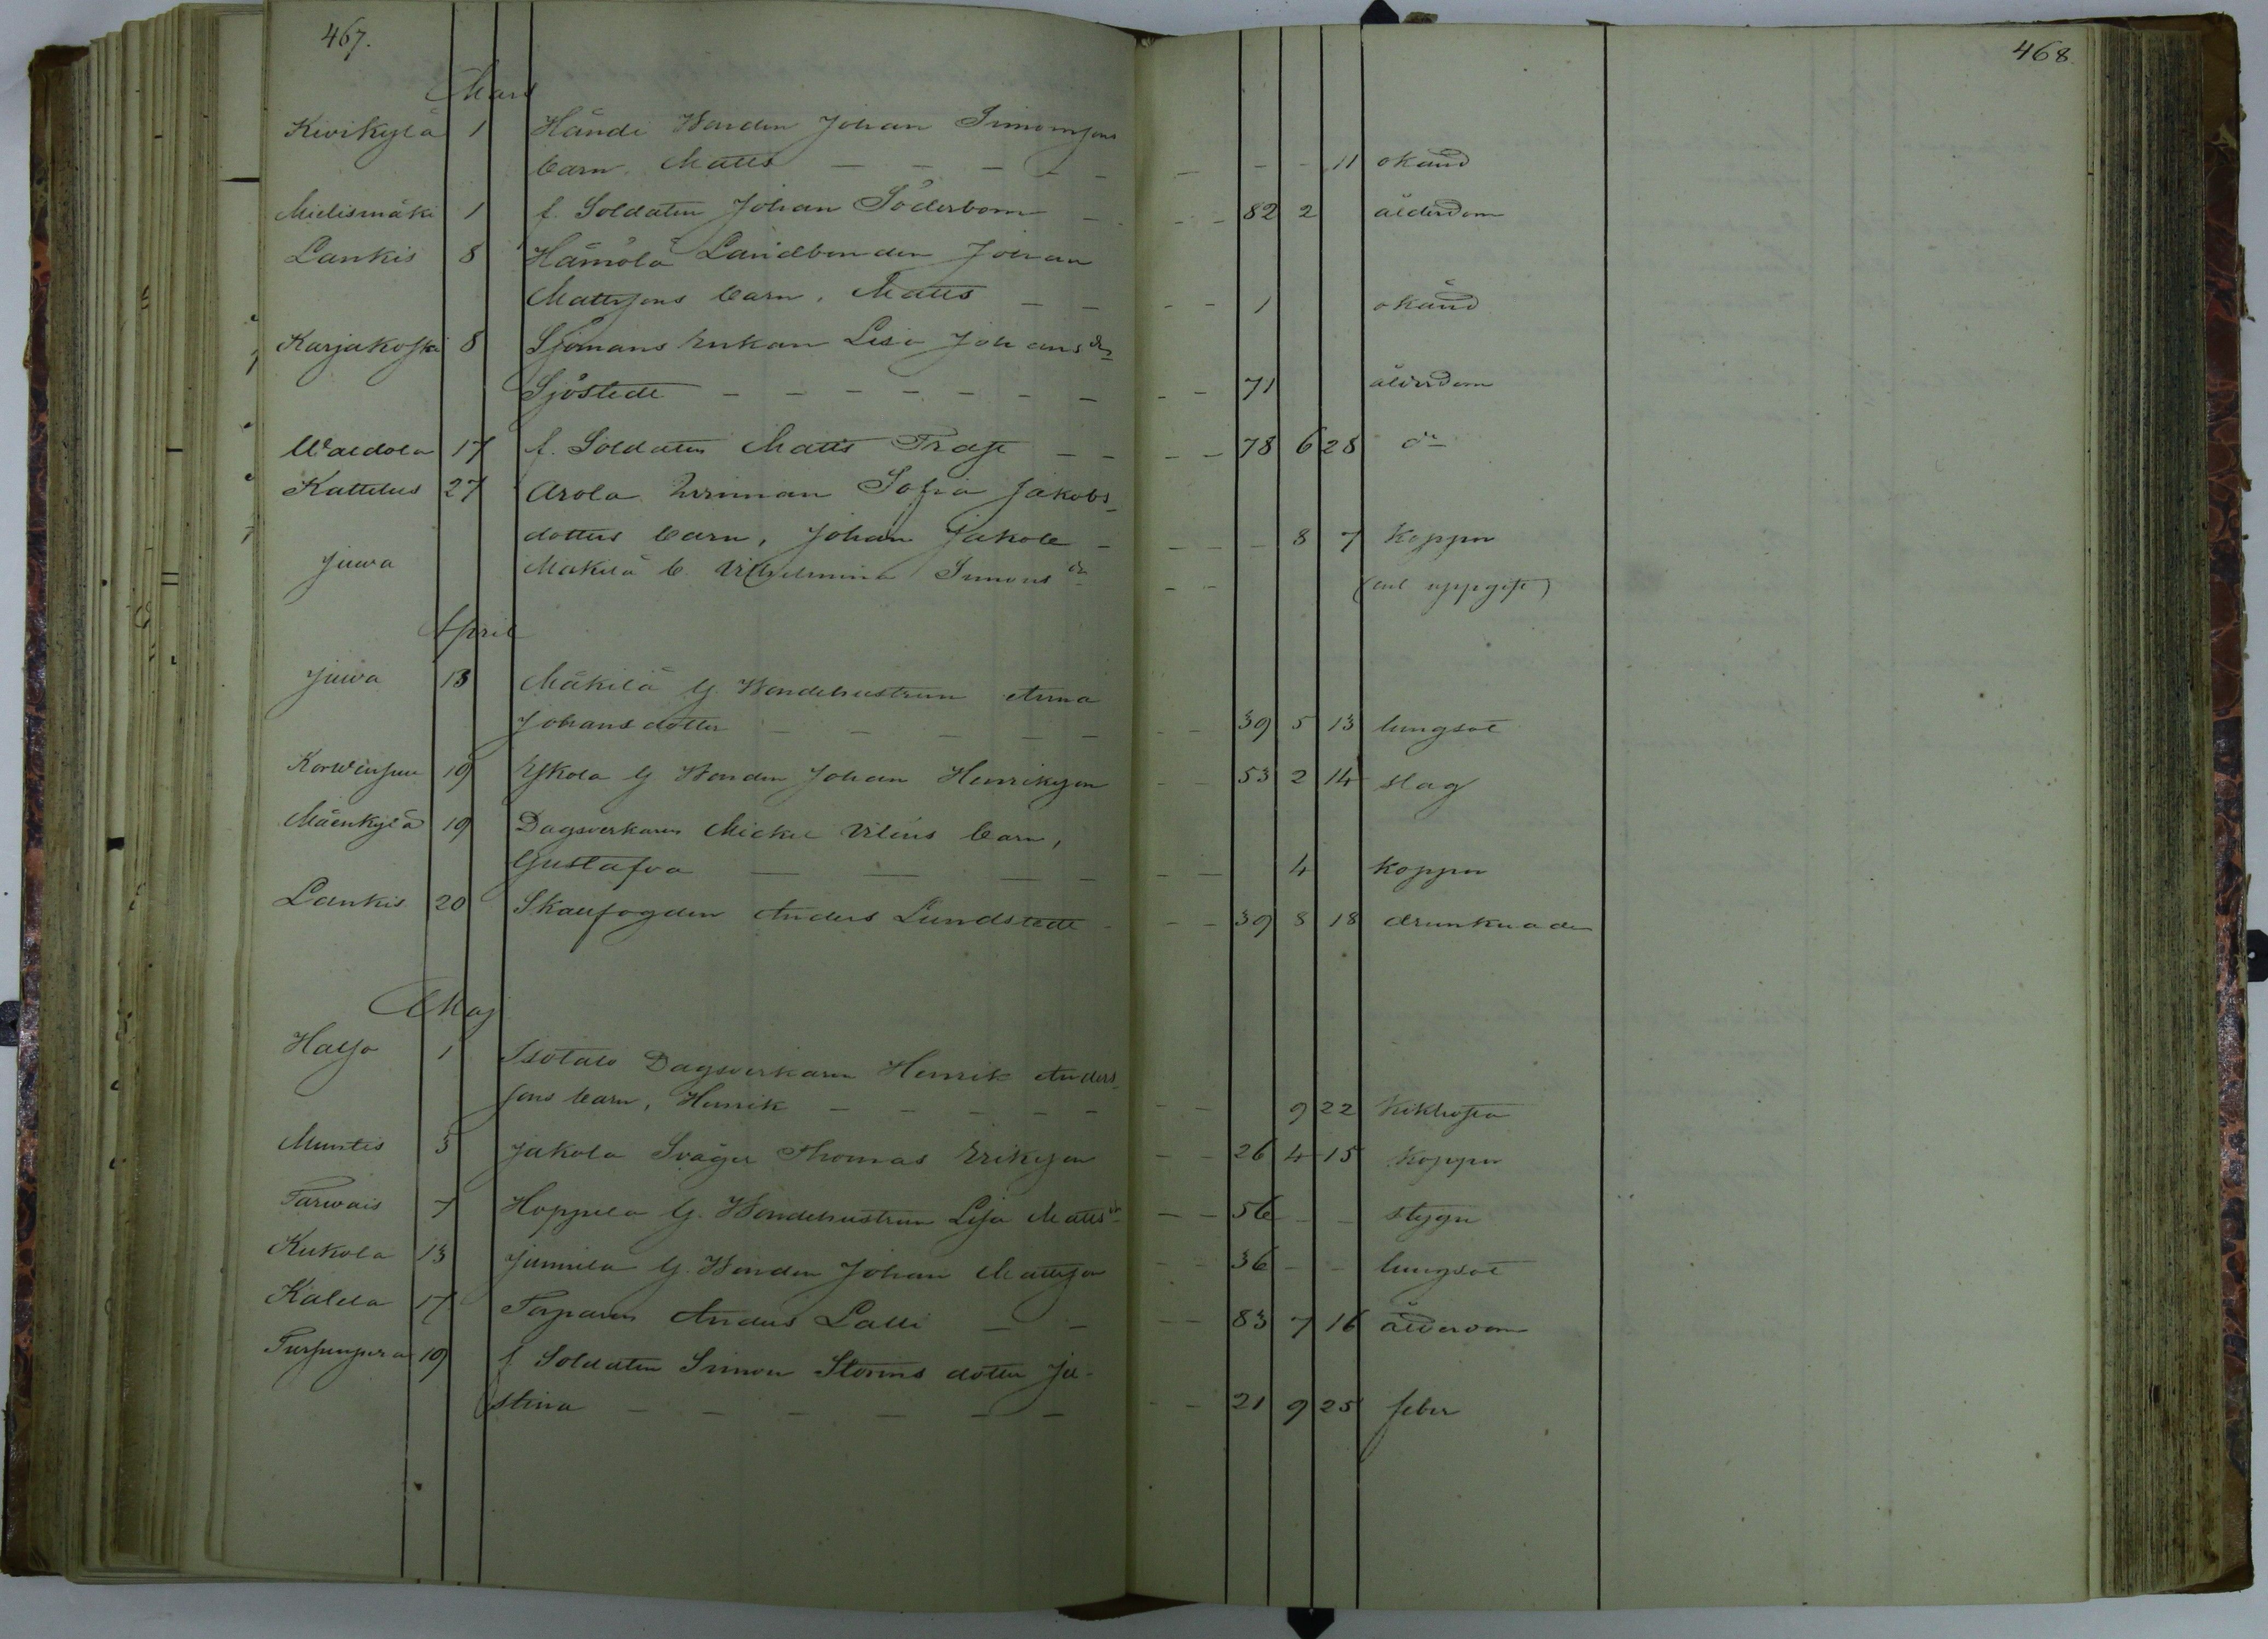 467.
468.
Mars
Kivikylä 1 Händi Bonden Johan Simonsons
barn. Matts — — — — 11 okänd
Mielismäki 1 f. Soldaten Johan Söderbom — 82 2 ålderdom
Lankis 8 Hämölä Landbonden Johan
Mattssons barn, Matts — — 1 okänd
Karjakoski 8 Sjömans Enkan Lisa Johansdr
Sjöstedt — — — — 71 ålderdom
Waldola 17 f. Soldaten Matts Trast — — 78 6 28 do
Kattelus 27 Arola Qvinnan Sofia Jakobs-
dotters barn, Johan Jakob — 8 7 Koppor
Juwa Mäkilä b. Vilhelmina Simonsdr — (enl uppgift)
April
Juwa 13 Mäkilä G. Bondehustrun Anna
Johansdotter — — — 39 5 13 lungsot
Korwensuu 19 Eskola G Bonden Johan Henriksson — 53 2 14 slag
Mäenkylä 19 Dagsverkaren Mickel Vileus barn,
Gustafva — — — 4 Koppor
Lankis 20 Skaufogden Anders Lundstedt — 39 8 18 drunknaden
Maj
Haljo 1 Isotalo Dagsverkaren Henrik Anders-
sons barn, Henrik — — — 9 22 Kikhosta
Muntis 5 Jakola Svåger Thomas Eriksson — — 26 4 15 Koppor
Tarwais 7 Hoppela G. Bondehustrun Lisa Mattsdr — — 56 — — stygn
Kukola 13 Junnila G. Bonden Johan Mattsson — 36 — — lungsot
Kalela 17 Torparen Anders Lalli — — 83 7 16 ålderdom
19 f Soldaten Simon Storms dotter Ju-
stina — — — 21 9 25 feber